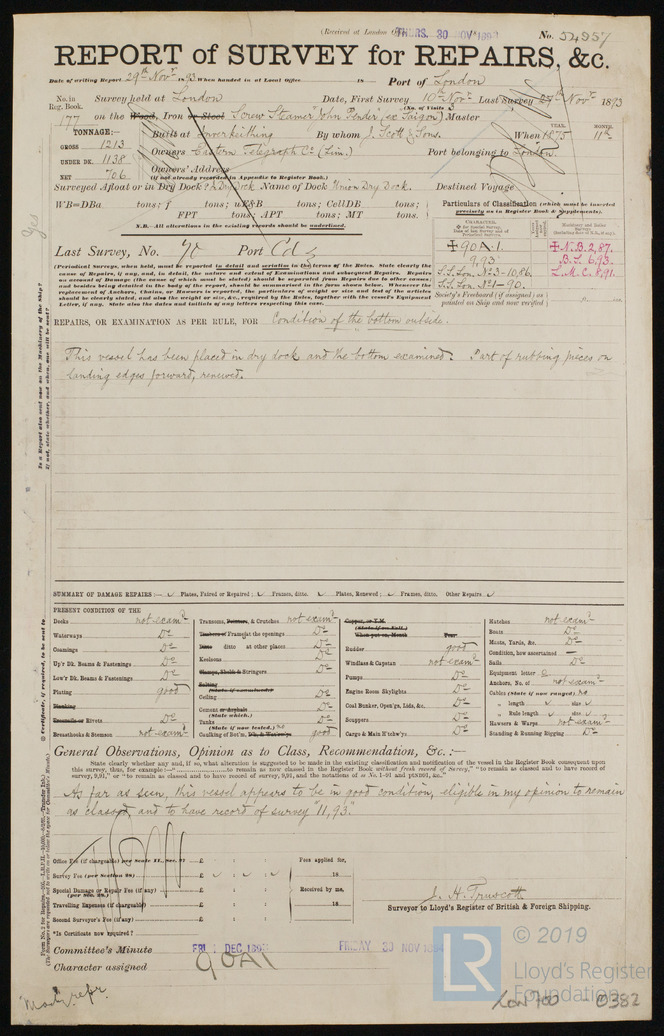 (Received at London
THURS. 30 NOV 1893
No. 54957
REPORT of SURVEY for REPAIRS, &c.
Date of writing Report 29th Novr 1893 When handed in at Local Office 18 Port of London
No. in Reg. Book. Survey held at London Date, First Survey 10th Novr Last Survey 27th Novr 1893
(No. of Visits 3
177 on the Wood, Iron or Steel Screw Steamer "John Pender" (ex Saigon) Master
TONNAGE:— Built at Inverkeithing By whom J. Scott & Sons. When 1875 11th
YEAR. MONTH.
GROSS 1213 Owners Eastern Telegraph Co (Lim.) Port belonging to London.
UNDER DK. 1138 Owners' Address
NET 706 (if not already recorded in Appendix to Register Book.)
Surveyed Afloat or in Dry Dock? Dry Dock Name of Dock Union Dry Dock. Destined Voyage
WB=DBa tons; f tons; uE&B tons; CellDB tons;
FPT tons; APT tons; MT tons.
N.B.—All alterations in the existing records should be underlined.
Particulars of Classification (which must be inserted precisely as in Register Book & Supplements).
CHARACTER.
Last Survey, No. Port Cdf
✠ 90 A.1. ✠ N.B. 2,87.
9,93 B.S. 6.93.
S.S. Lon. No 3-10,86. L.M.C. 8,91.
S.S. Lon. No 1-90.
Society's Freeboard (if assigned) as painted on Ship and now verified
(Periodical Surveys, when held, must be reported in detail and seriatim in the terms of the Rules. State clearly the cause of Repairs, if any, and, in detail, the nature and extent of Examinations and subsequent Repairs. Repairs on account of Damage (the cause of which must be stated) should be separated from Repairs due to other causes; and besides being detailed in the body of the report, should be summarised in the form shown below. Whenever the replacement of Anchors, Chains, or Hawsers is reported, the particulars of weight or size and test of the articles should be clearly stated, and also the weight or size, &c., required by the Rules, together with the vessel's Equipment Letter, if any. State also the dates and initials of any letters respecting this case.
REPAIRS, OR EXAMINATION AS PER RULE, FOR Condition of the bottom outside.
This vessel has been placed in dry dock and the bottom examined. Part of rubbing pieces on
landing edges forward, renewed.
Yes
Is a Report also sent now on the Machinery of the ship?
If not, state whether, and when, one will be sent?
SUMMARY OF DAMAGE REPAIRS:— Plates, Faired or Repaired; Frames, ditto. Plates, Renewed; Frames, ditto, Other Repairs.
PRESENT CONDITION OF THE
Decks not examd
Waterways Do
Coamings Do
Up'r Dk. Beams & Fastenings Do
Low'r Dk. Beams & Fastenings Do
Plating good
Planking
Treenails or Rivets Do
Breasthooks & Stemson not examd
Transoms, Pointers, & Crutches not examd
Timbers of Frame at the openings Do
Ditto ditto at other places Do
Keelsons Do
Clamps, Shelfs & Stringers Do
Salting
(State if examined.)
Ceiling Do
Cement or Asphalt Do
(State which.)
Tanks Do
(State if now tested.) no
Caulking of Bot'm, Dk. & Waterw'ys good
Copper, or Y.M.
(State if on Felt.)
When put on, Month Year
Rudder good
Windlass & Capstan not examd
Pumps Do
Engine Room Skylights Do
Coal Bunker, Open'gs, Lids, &c. Do
Scuppers Do
Cargo & Main H'tchw'ys Do
Hatches not examd
Boats Do
Masts, Yards, &c. Do
Condition, how ascertained —
Sails Do
Equipment letter
Anchors, No. of not examd
Cables (State if now ranged) no
" length size
" Rule length size
Hawsers & Warps not examd
Standing & Running Rigging Do
General Observations, Opinion as to Class, Recommendation, &c. :—
State clearly whether any, and if so, what alteration is suggested to be made in the existing classification and notification of the vessel in the Register Book consequent upon
As far as seen, this vessel appears to be in good condition, eligible in my opinion to remain
as classed, and to have record of survey "11,93".
Office Fee (if chargeable) per Scale II., Sec. 27 £ : :
Survey Fee (per Section 28) £
Special Damage or Repair Fee (if any) £
(per Sec. 28.)
Travelling Expenses (if chargeable) £
Second Surveyor's Fee (if any) £
Fees applied for, 18
Received by me, 18
J. H. Truscott
Surveyor to Lloyd's Register of British & Foreign Shipping.
*Is Certificate now required?
Committee's Minute FRI. 1 DEC 1893 FRIDAY 30 NOV 1894
Character assigned 90A1
LR
© 2019
Lloyd's Register
Foundation
LON 700 - 0382